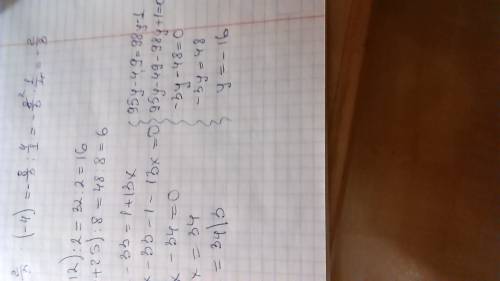 (-4) = -8/3 : 4/1 = -8/3 · 1/4 = -2/3
12) : 2 = 32 : 2 = 16
+25) : 8 = 48 : 8 = 6
- 33 = 1 + 13x
x - 33 - 1 - 13x = 0
x - 34 = 0
x = 34
95y-49=98y-1
95y-49-98y+1=0
-3y-48=0
-3y=48
y=-16